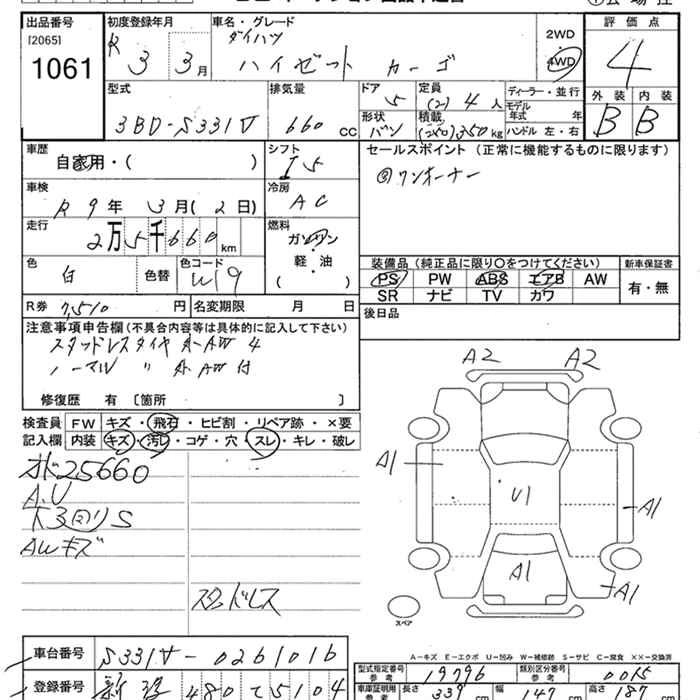 出品番号 初度登録年月 車名・グレード 評価点
[2065] R 3 3月 ダイハツ 2WD
1061 ハイゼット カーゴ 4WD 4
型式 排気量 ドア 定員 ディーラー・並行 外装 内装
3BD-S331V 660 CC 5 (2) 4人 モデル年式 年 B B
形状 積載 ハンドル 左・右
バン (250)350kg
車歴 シフト セールスポイント (正常に機能するものに限ります)
自家用・( ) I5
車検 冷房 ワンオーナー
R 9年 3月(2日) AC
走行 燃料
2万5千660km ガソリン
軽・油
( )
色 色替 色コード 装備品(純正品に限り○をつけてください) 新車保証書
白 W19 PS PW ABS エアB AW 有・無
SR ナビ TV カワ
R券 7,510円 名変期限 月 日 後日品
注意事項申告欄(不具合内容等は具体的に記入して下さい)
スタッドレスタイヤ 4
ノーマル 〃 付
修復歴 有 [箇所 ]
検査員 FW キズ・飛石・ヒビ割・リペア跡・×要
記入欄 内装 キズ・汚レ・コゲ・穴・スレ・キレ・破レ
25660
A.U
S
AWキズ
スタッドレス
A2 A2
A1 U1 A1
A1 A1
スペア
A-キズ E-エクボ U-凹み W-補修跡 S-サビ C-腐食 XX-交換済
車台番号 S331V-0261016
型式指定番号 参考 19796 類別区分番号 参考 0015
登録番号 480 5104
車庫証明用 参考 長さ 339cm 幅 147cm 高さ 187cm